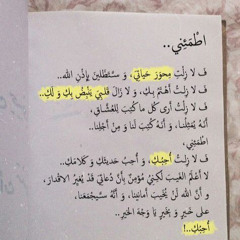 اطْمَئِنِي..
فَ لا زِلْتِ مِحْوَر حَيَاتِي، وَ سَتَظَلِّينَ بِإِذْنِ الله..
فَ لا زِلْتُ أَهْتَمُّ بِكِ، وَ لا زَالَ قَلْبِي يَنْبِضُ بِكِ وَ لَكِ..
فَ لا زِلْتُ أرى كُلَّ ما كُتِبَ لِلعُشَّاقِ،
أنَّهُ يُمَثِّلُنا، وَ أنَّهُ كُتِبَ لَنَا وَ مِنْ أَجْلِنَا..
اطْمَئِنِي،
فَ لا زِلْتُ أُحِبُّكِ، وَ أُحِبُّ حَدِيثَكِ وَ كَلامَكِ..
لا أَعْلَمُ الغَيْبَ لَكِنِّي مُؤْمِنٌ بِأَنَّ دُعَائِي قَدْ يُغَيِّرُ الاقْدارَ،
وَ أَنَّ الله لَنْ يُخَيِّبَ أَمَانِينَا، وَ أَنَّهُ سَيَجْمَعُنا،
على خَيْرٍ وَ بِخَيْرٍ يَا وَجْهَ الخَيْرِ..
أُحِبُّكِ..!